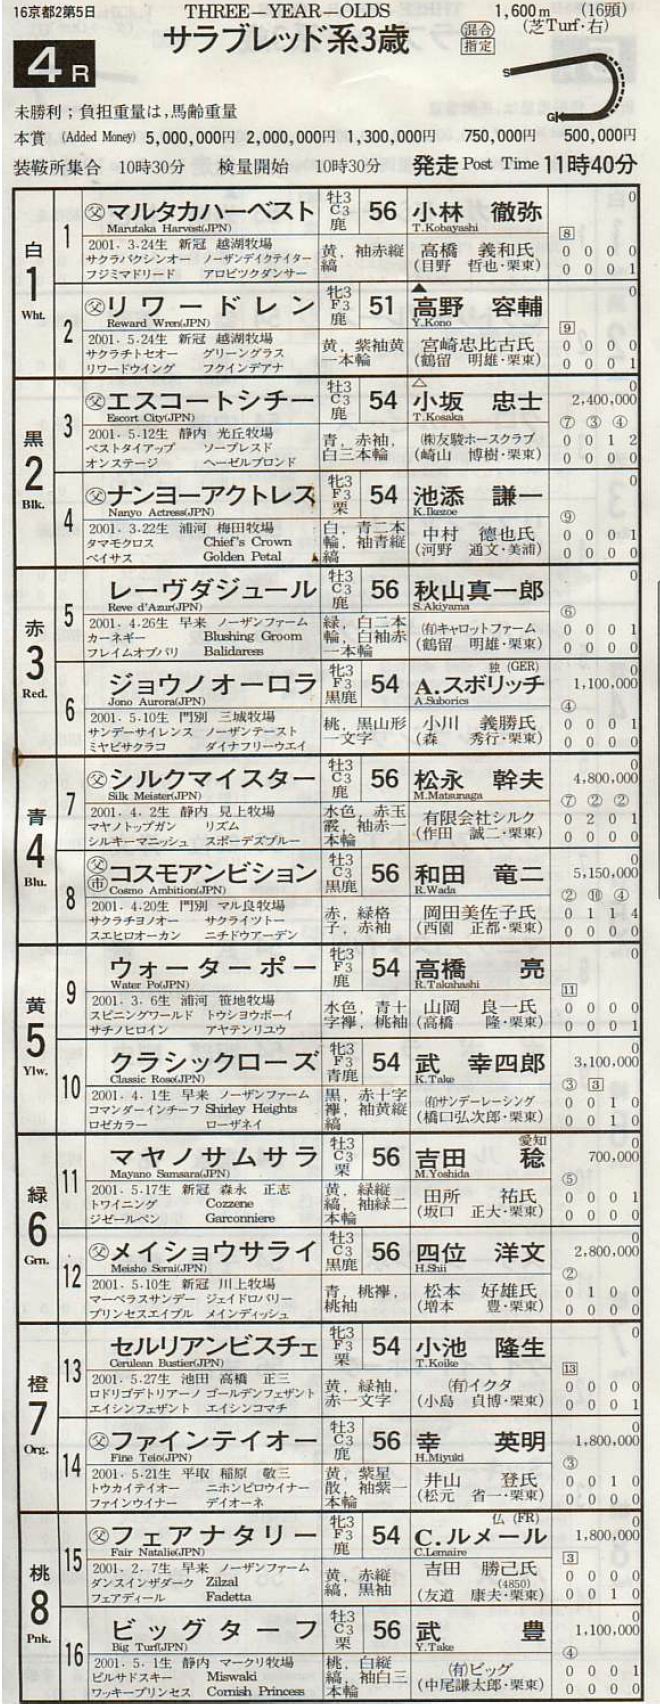 16京都2第5日
THREE-YEAR-OLDS
1,600m (16頭)
サラブレッド系3歳
混合
指定
(芝Turf・右)
4R
S
G
未勝利;負担重量は,馬齢重量
本賞 (Added Money) 5,000,000円 2,000,000円 1,300,000円 750,000円 500,000円
装鞍所集合 10時30分 検量開始 10時30分 発走 Post Time 11時40分
白
1
Wht.
1
父マルタカハーベスト
Marutaka Harvest(JPN)
牡3 C3 鹿
56
小林 徹弥
T.Kobayashi
0
2001. 3.24生 新冠 越湖牧場
サクラバクシンオー ノーザンデイクテイター
フジミマドリード アロピツクダンサー
黄,袖赤縦縞
高橋 義和氏
(目野 哲也・栗東)
8
0 0 0 0
0 0 0 1
2
父リワードレン
Reward Wren(JPN)
牝3 F3 鹿
51
▲
高野 容輔
Y.Kono
0
2001. 5.24生 新冠 越湖牧場
サクラチトセオー グリーングラス
リワードウイング フクインデアナ
黄,紫袖黄一本輪
宮崎忠比古氏
(鶴留 明雄・栗東)
9
0 0 0 0
0 0 0 1
黒
2
Blk.
3
父エスコートシチー
Escort City(JPN)
牡3 C3 鹿
54
△
小坂 忠士
T.Kosaka
0
2,400,000
2001. 5.12生 静内 光丘牧場
ベストタイアップ ソーブレスド
オンステージ ヘーゼルブロンド
青,赤袖,白三本輪
(株)友駿ホースクラブ
(崎山 博樹・栗東)
⑦ ③ ④
0 0 1 2
0 0 0 0
4
父ナンヨーアクトレス
Nanyo Actress(JPN)
牝3 F3 栗
54
池添 謙一
K.Ikezoe
0
2001. 3.22生 浦河 梅田牧場
タマモクロス Chief's Crown
ペイサス Golden Petal
白,青二本輪,袖青縦縞
中村 徳也氏
(河野 通文・美浦)
⑨
0 0 0 1
0 0 0 0
赤
3
Red.
5
レーヴダジュール
Reve d'Azur(JPN)
牡3 C3 鹿
56
秋山真一郎
S.Akiyama
0
2001. 4.26生 早来 ノーザンファーム
カーネギー Blushing Groom
フレイムオブパリ Balidaress
緑,白二本輪,白袖赤一本輪
(有)キャロットファーム
(鶴留 明雄・栗東)
⑥
0 0 0 1
0 0 0 0
6
ジョウノオーロラ
Jono Aurora(JPN)
牝3 F3 黒鹿
54
独 (GER)
A.スボリッチ
A.Suborics
0
1,100,000
2001. 5.10生 門別 三城牧場
サンデーサイレンス ノーザンテースト
ミヤビサクラコ ダイナフリーウエイ
桃,黒山形一文字
小川 義勝氏
(森 秀行・栗東)
④
0 0 0 1
0 0 0 0
青
4
Blu.
7
父シルクマイスター
Silk Meister(JPN)
牡3 C3 鹿
56
松永 幹夫
M.Matsunaga
0
4,800,000
2001. 4. 2生 静内 見上牧場
マヤノトップガン リズム
シルキーマニッシュ スポーデズブルー
水色,赤玉霰,袖赤一本輪
有限会社シルク
(作田 誠二・栗東)
⑦ ② ②
0 2 0 1
0 0 0 0
8
父市コスモアンビション
Cosmo Ambition(JPN)
牡3 C3 黒鹿
56
和田 竜二
R.Wada
0
5,150,000
2001. 4.20生 門別 マル良牧場
サクラチヨノオー サクライツトー
スエヒロオーカン ニチドウアーデン
赤,緑格子,赤袖
岡田美佐子氏
(西園 正都・栗東)
② ⑩ ④
0 1 1 4
0 0 0 0
黄
5
Ylw.
9
ウォーターポー
Water Po(JPN)
牝3 F3 鹿
54
高橋 亮
R.Takahashi
0
2001. 3. 6生 浦河 笹地牧場
スピニングワールド トウショウボーイ
サチノヒロイン アヤテンリユウ
水色,青十字襷,桃袖
山岡 良一氏
(高橋 隆・栗東)
11
0 0 0 0
0 0 0 1
10
クラシックローズ
Classic Rose(JPN)
牝3 F3 青鹿
54
武 幸四郎
K.Take
0
3,100,000
2001. 4. 1生 早来 ノーザンファーム
コマンダーインチーフ Shirley Heights
ロゼカラー ローザネイ
黒,赤十字襷,袖黄縦縞
(有)サンデーレーシング
(橋口弘次郎・栗東)
③ 3
0 0 1 0
0 0 1 0
緑
6
Grn.
11
マヤノサムサラ
Mayano Samsara(JPN)
牡3 C3 栗
56
愛知
吉田 稔
M.Yoshida
0
700,000
2001. 5.17生 新冠 森永 正志
トワイニング Cozzene
ジゼールペン Garconniere
黄,緑縦縞,袖緑二本輪
田所 祐氏
(坂口 正大・栗東)
⑤
0 0 0 1
0 0 0 0
12
父メイショウサライ
Meisho Serai(JPN)
牡3 C3 黒鹿
56
四位 洋文
H.Shii
0
2,800,000
2001. 5.10生 新冠 川上牧場
マーベラスサンデー ジェイドロバリー
プリンセスエイブル メインディッシュ
青,桃襷,桃袖
松本 好雄氏
(増本 豊・栗東)
②
0 1 0 0
0 0 0 0
橙
7
Org.
13
セルリアンビスチェ
Cerulean Bustier(JPN)
牝3 F3 栗
54
小池 隆生
T.Koike
0
2001. 5.27生 池田 高橋 正三
ロドリゴデトリアーノ ゴールデンフェザント
エイシンフェザント エイシンコマチ
黄,緑袖,赤一文字
(有)イクタ
(小島 貞博・栗東)
13
0 0 0 0
0 0 0 1
14
父ファインテイオー
Fine Teio(JPN)
牡3 C3 鹿
56
幸 英明
H.Miyuki
0
1,800,000
2001. 5.21生 平取 稲原 敬三
トウカイテイオー ニホンピロウイナー
ファインウイナー デイオーネ
黄,紫星散,袖紫一本輪
井山 登氏
(松元 省一・栗東)
③
0 0 1 0
0 0 0 0
桃
8
Pnk.
15
父フェアナタリー
Fair Natalie(JPN)
牝3 F3 鹿
54
仏 (FR)
C.ルメール
C.Lemaire
0
1,800,000
2001. 2. 7生 早来 ノーザンファーム
ダンスインザダーク Zilzal
フェアディール Fadetta
黄,赤縦縞,黒袖
吉田 勝己氏
(4850)
(友道 康夫・栗東)
3
0 0 0 0
0 0 1 0
16
ビッグターフ
Big Turf(JPN)
牡3 C3 栗
56
武 豊
Y.Take
0
1,100,000
2001. 5. 1生 静内 マークリ牧場
ピルサドスキー Miswaki
ワッキープリンセス Cornish Princess
桃,白縦縞,袖白三本輪
(有)ビッグ
(中尾謙太郎・栗東)
④
0 0 0 1
0 0 0 0